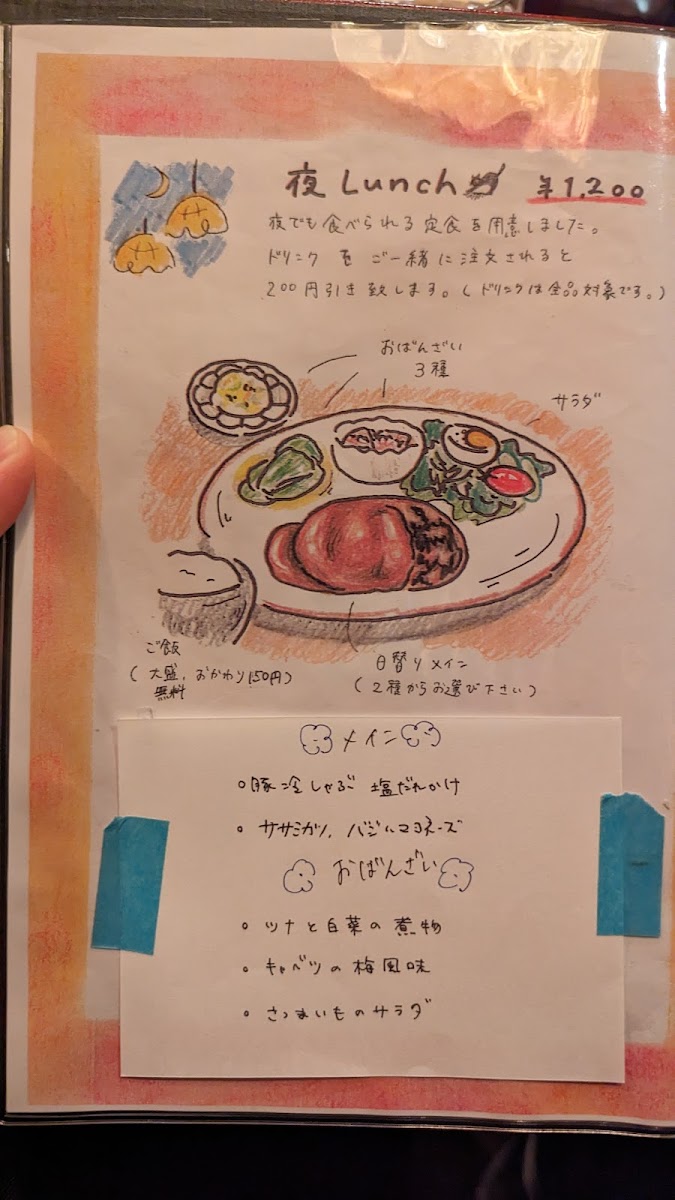 夜 Lunch ¥1,200
夜でも食べられる定食を用意しました。
ドリンクをご一緒に注文されると
200円引き致します。(ドリンクは全品対象です。)
おばんざい
3種
サラダ
ご飯
(大盛、おかわり150円)
無料
日替りメイン
(2種からお選び下さい)
メイン
○豚冷しゃぶ 塩だれかけ
○ササミカツ、バジルマヨネーズ
おばんざい
○ツナと白菜の煮物
○キャベツの梅風味
○さつまいものサラダ